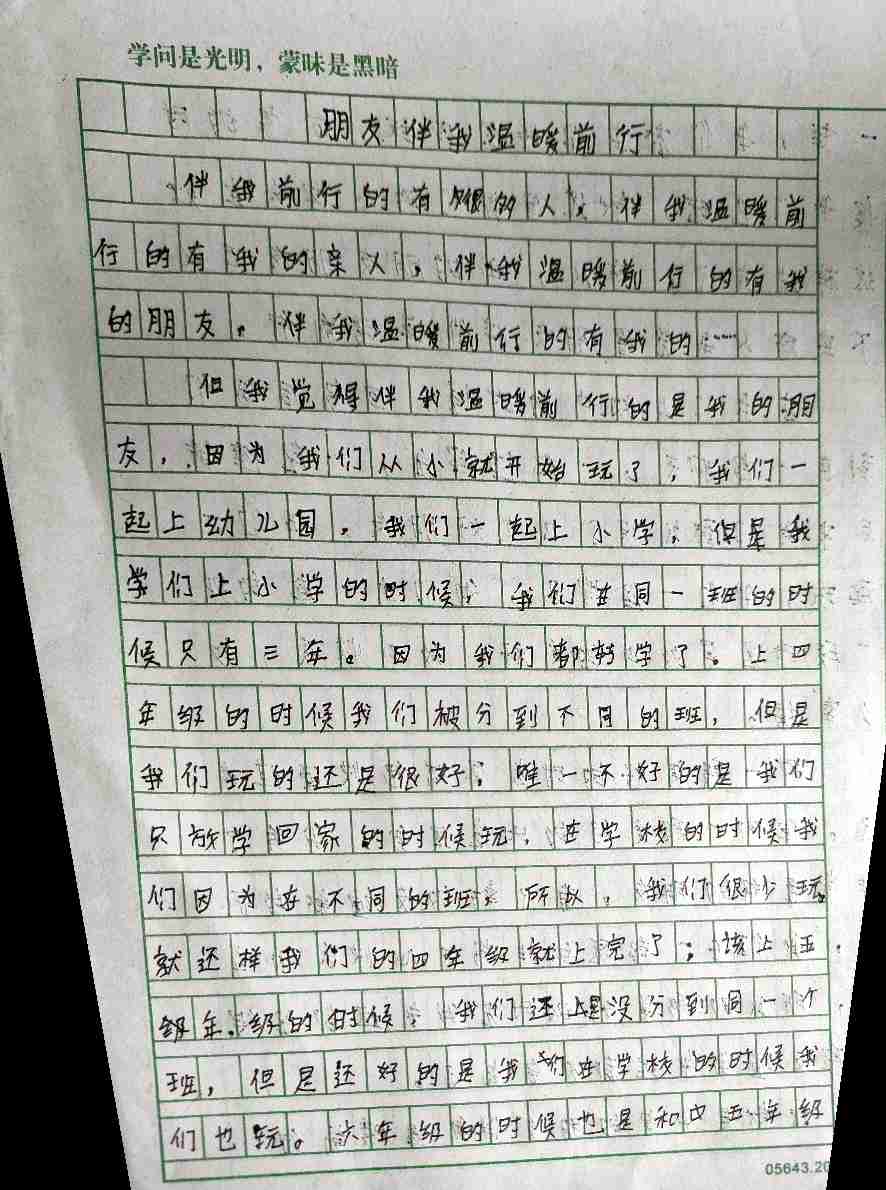 学问是光明，蒙昧是黑暗
朋友伴我温暖前行
伴我前行的有很多人，伴我温暖前
行的有我的亲人，伴我温暖前行的有我
的朋友。伴我温暖前行的有我的……
但我觉得伴我温暖前行的是我的朋
友，因为我们从小就开始玩了，我们一
起上幼儿园，我们一起上小学，但是我
学们上小学的时候，我们在同一班的时
候只有三年。因为我们都转学了。上四
年级的时候我们被分到不同的班，但是
我们玩的还是很好；唯一不好的是我们
只放学回家的时候玩，在学校的时候我
们因为在不同的班，所以，我们很少玩。
就还样我们的四年级就上完了；该上五
级年.级的时候，我们还是没分到同一个
班，但是还好的是我们在学校的时候我
们也玩。六年级的时候也是和五年级
05643.20